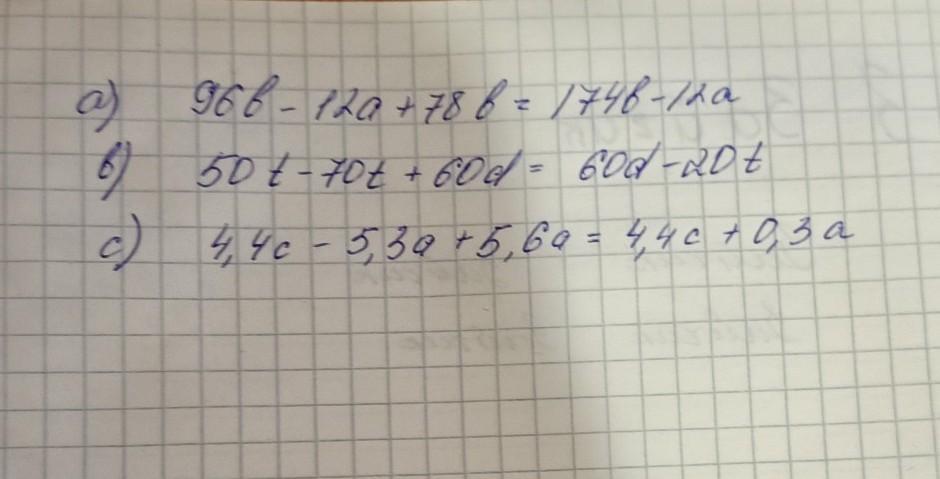 a) 96b - 12a + 78b = 174b - 12a
b) 50t - 70t + 60d = 60d - 20t
c) 4,4c - 5,3a + 5,6a = 4,4c + 0,3a